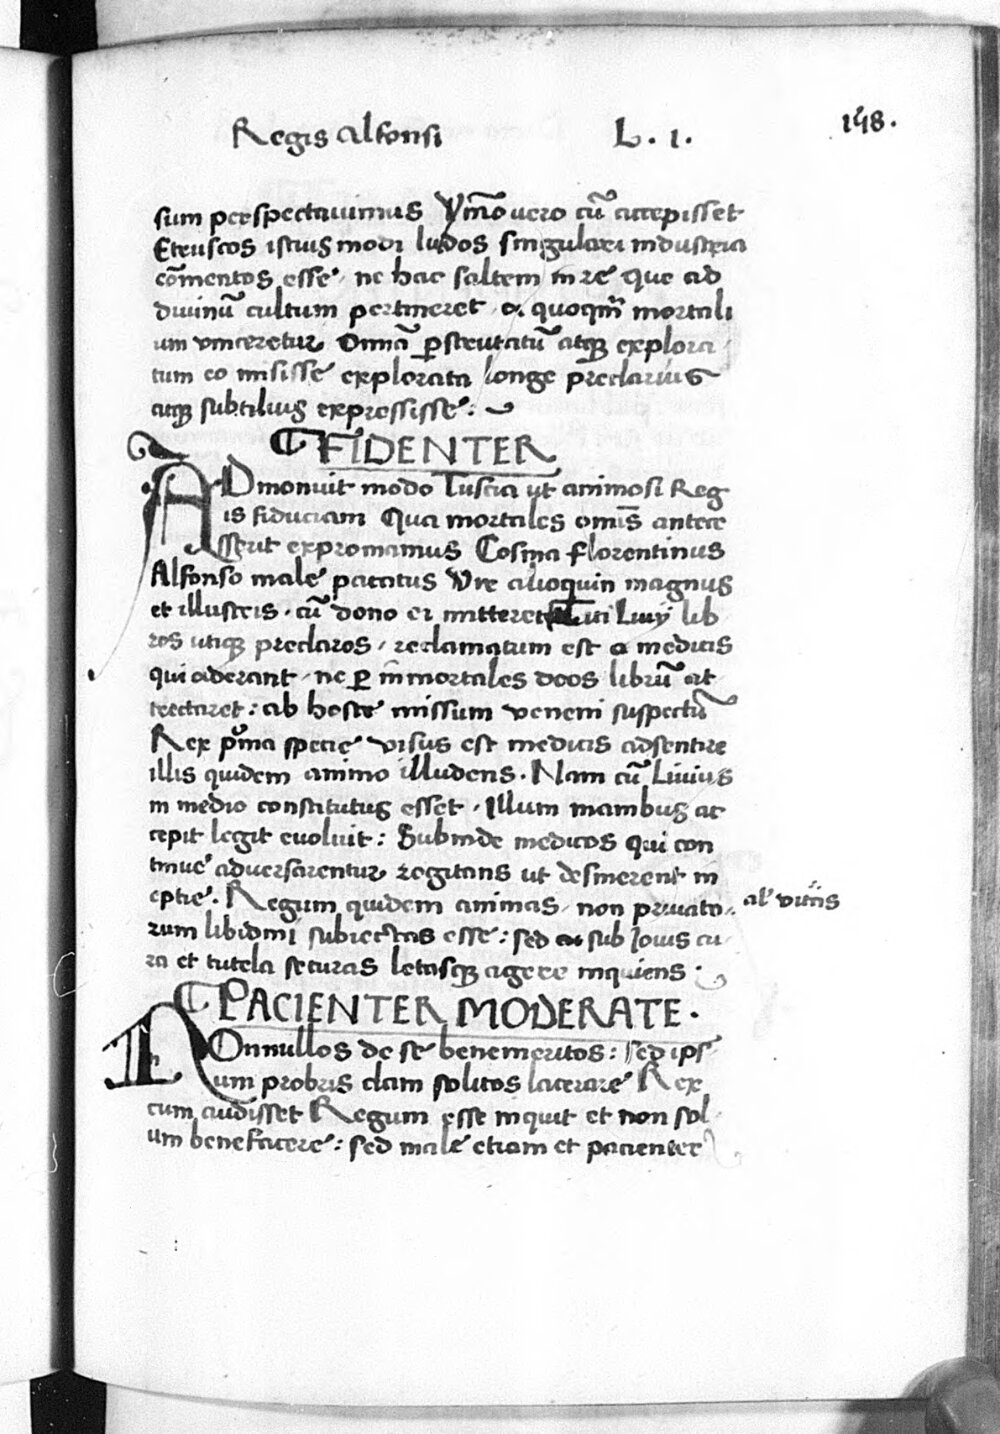 Regis Alfonsi L. 1. 148.
sum perspectauimus Ym̄o uero cū accepisset
Etruscos istius modi ludos singulari industria
cōmentos esse, ne hac saltem in re que ad
diuinū cultum pertineret a quoqm̄ mortali
um vinceretur Omnia perscrutatū atqꝫ explora
tum eo misisse explorata longe preclarius
atqꝫ subtilius expressisse:
FIDENTER
ADmonuit modo Tuscia ut animosi Reg
is fiduciam Qua mortales omīs antece
sserit expromamus Cosma florentinus
Alfonso male pacatus Vir alioquin magnus
et illustris. cū dono ei mitteret Titi Liuÿ lib
ros utiqꝫ preclaros, reclamatum est a medicis
qui aderant, ne ꝑ īmmortales deos librū at
trectaret: ab hoste missum veneni suspectū
Rex pͥma specie visus est medicis adsentire
illis quidem animo illudens. Nam cū Liuius
in medio constitutus esset, Illum manibus ac
cepit legit euoluit: Subinde medicos qui con
tinue aduersarentur rogitans ut desinerent in
eptire. Regum quidem animas, non priuato. al' 
rum libidini subiectas esse: sed sub Iouis cu
ra et tutela securas letasqꝫ agere inquiens:
PACIENTER MODERATE.
NOnnullos de se benemeritos: sed ips
um probris clam solitos lacerare Rex
cum audisset Regum esse inquit et non sol
um benefacere: sed male etiam et pacienter